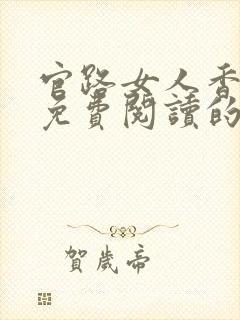 官路女人香
免費閱讀的
賀歲帝